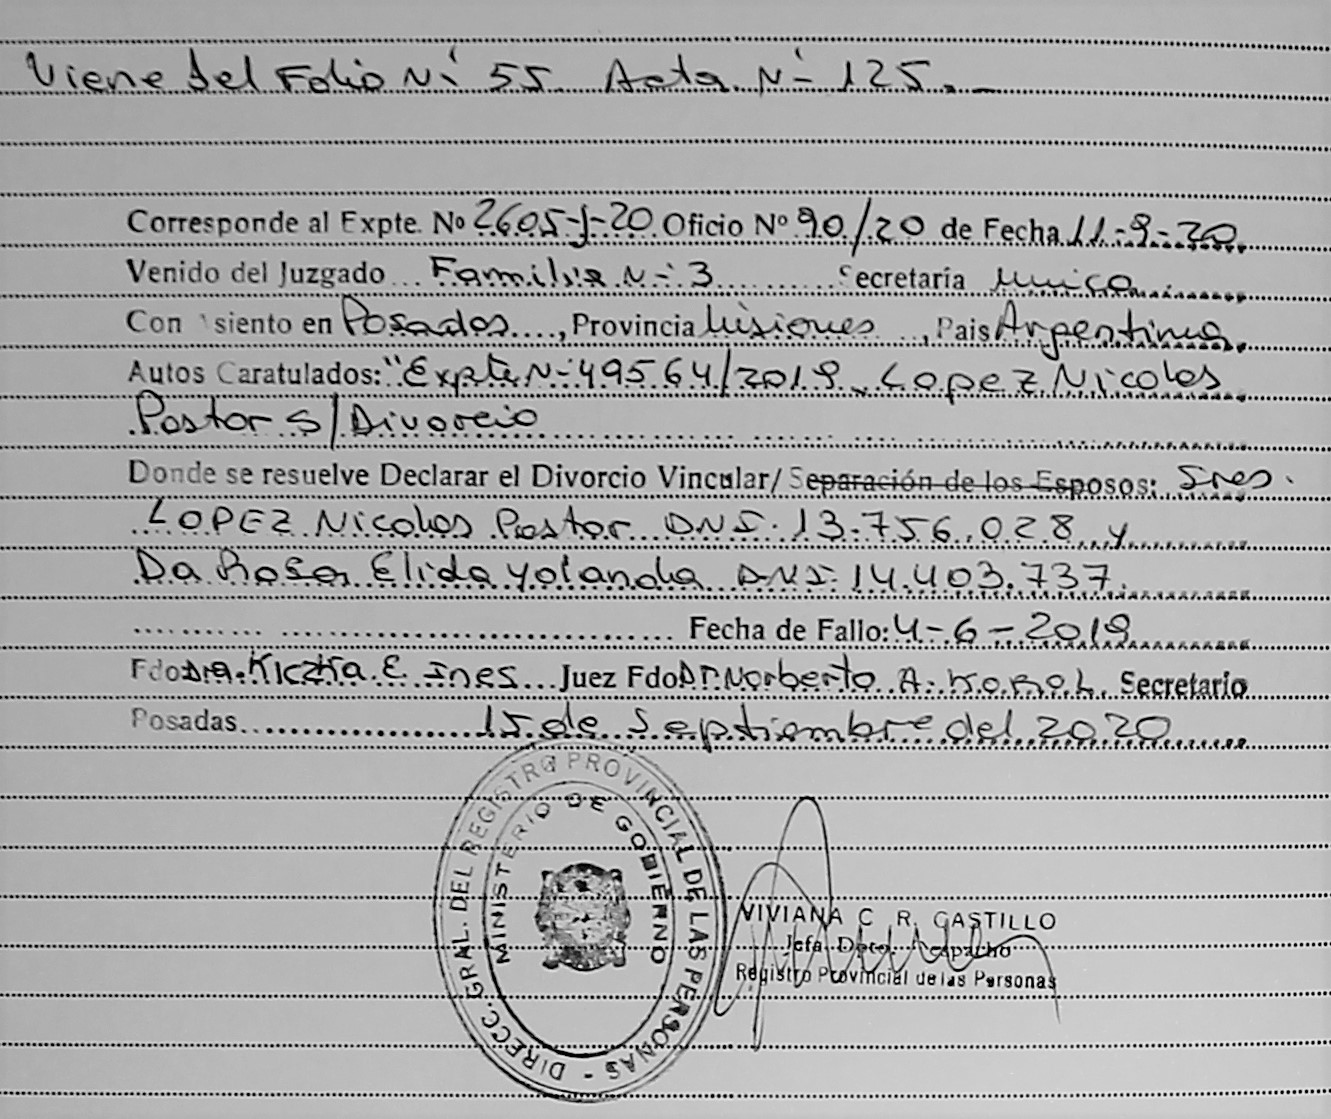 Viene del Folio Nº 55 Acta Nº 125.-
Corresponde al Expte. Nº 2605-J-20 Oficio Nº 90/20 de Fecha 11-9-20
Venido del Juzgado Familia Nº 3 Secretaría Unica
Con siento en Posadas, Provincia Misiones, Pais Argentina
Autos Caratulados: "Expte Nº 49564/2019 Lopez Nicolas
Pastor S/Divorcio
Donde se resuelve Declarar el Divorcio Vincular/ Separación de los Esposos: Sres.
LOPEZ Nicolas Pastor DNI 13.756.028 y
Da Rosa Elida Yolanda DNI 14.403.737.
Fecha de Fallo: 4-6-2019
Fdo Dra. Kiczka E Ines Juez Fdo Dr Norberto A. Korol Secretario
Posadas 15 de Septiembre del 2020
DIRECC. GRAL. DEL REGISTRO PROVINCIAL DE LAS PERSONAS -
MINISTERIO DE GOBIERNO
VIVIANA C R. CASTILLO
Jefa Dpto. Despacho
Registro Provincial de las Personas